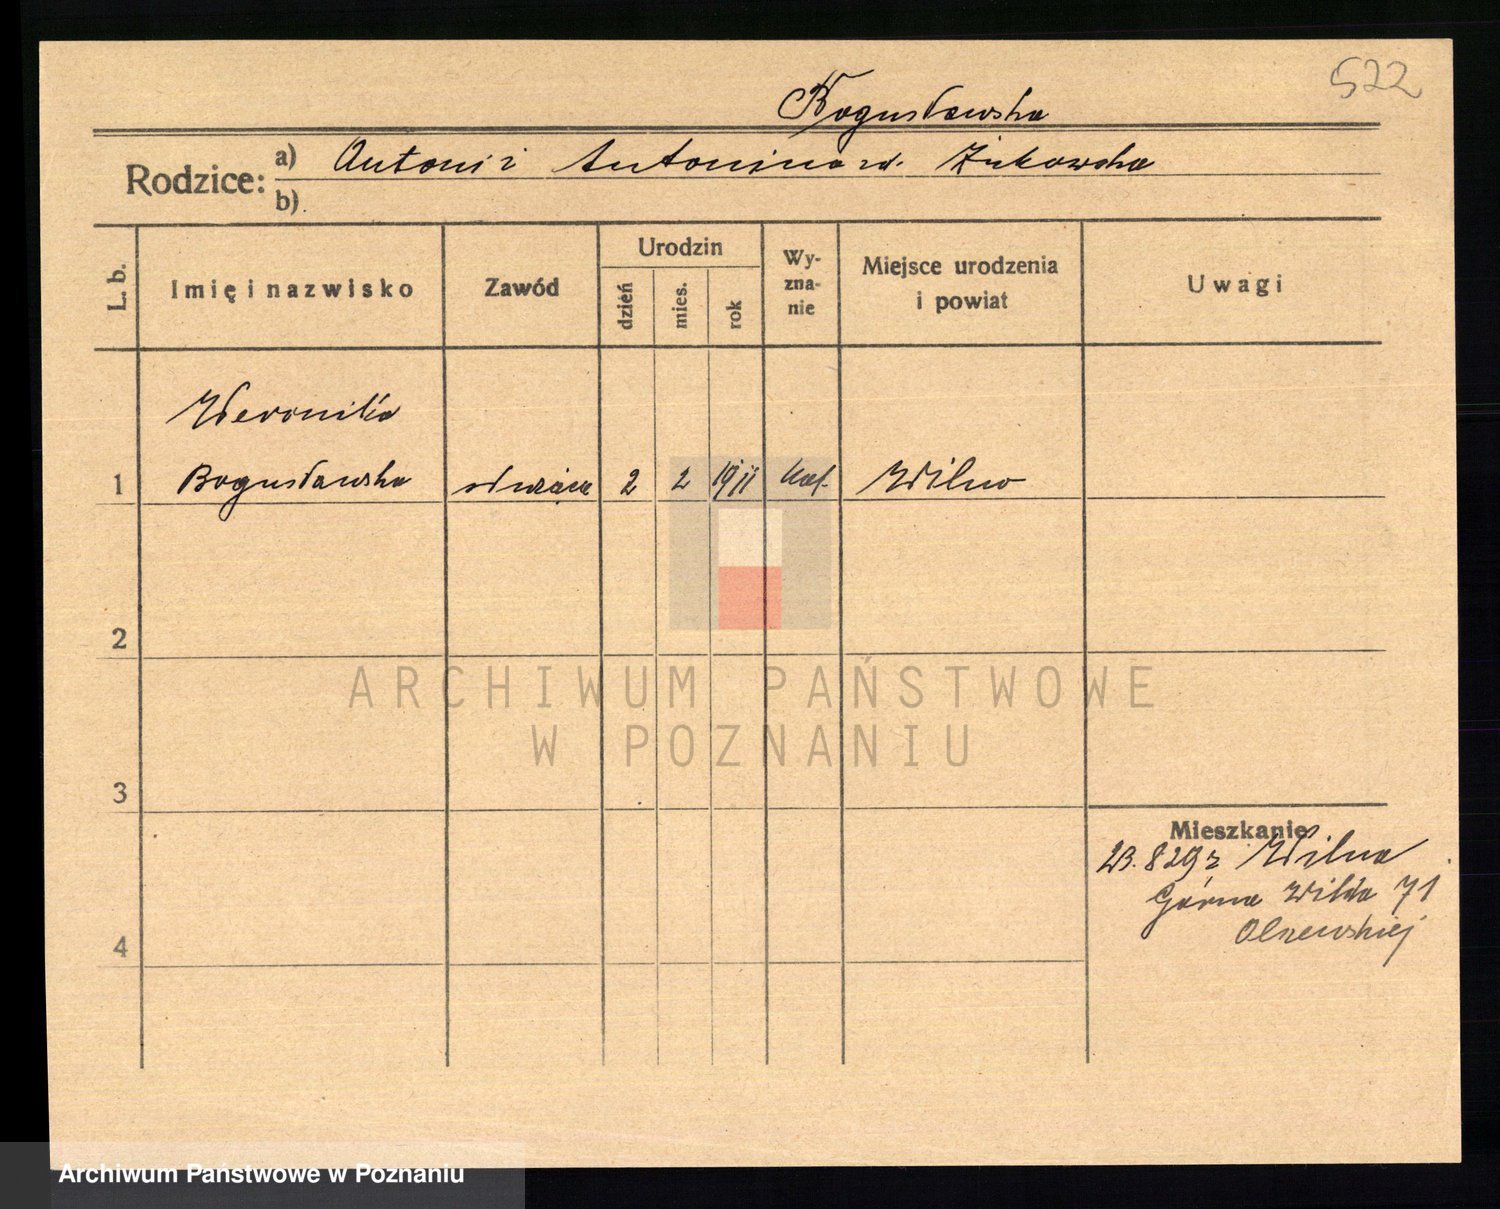 522
Bogusławska
Rodzice: a) Antoni i Antonina zd. Żukowska
b)
L. b.
Imię i nazwisko
Zawód
Urodzin
dzień
mies.
rok
Wy-
zna-
nie
Miejsce urodzenia
i powiat
Uwagi
Weronika
1 Bogusławska służąca 2 2 1911 kat. Wilno
2
3
4
Mieszkanie
23.8 29 r Wilna
Górna Wilda 71
Olszewskiej
ARCHIWUM PAŃSTWOWE
W POZNANIU
Archiwum Państwowe w Poznaniu